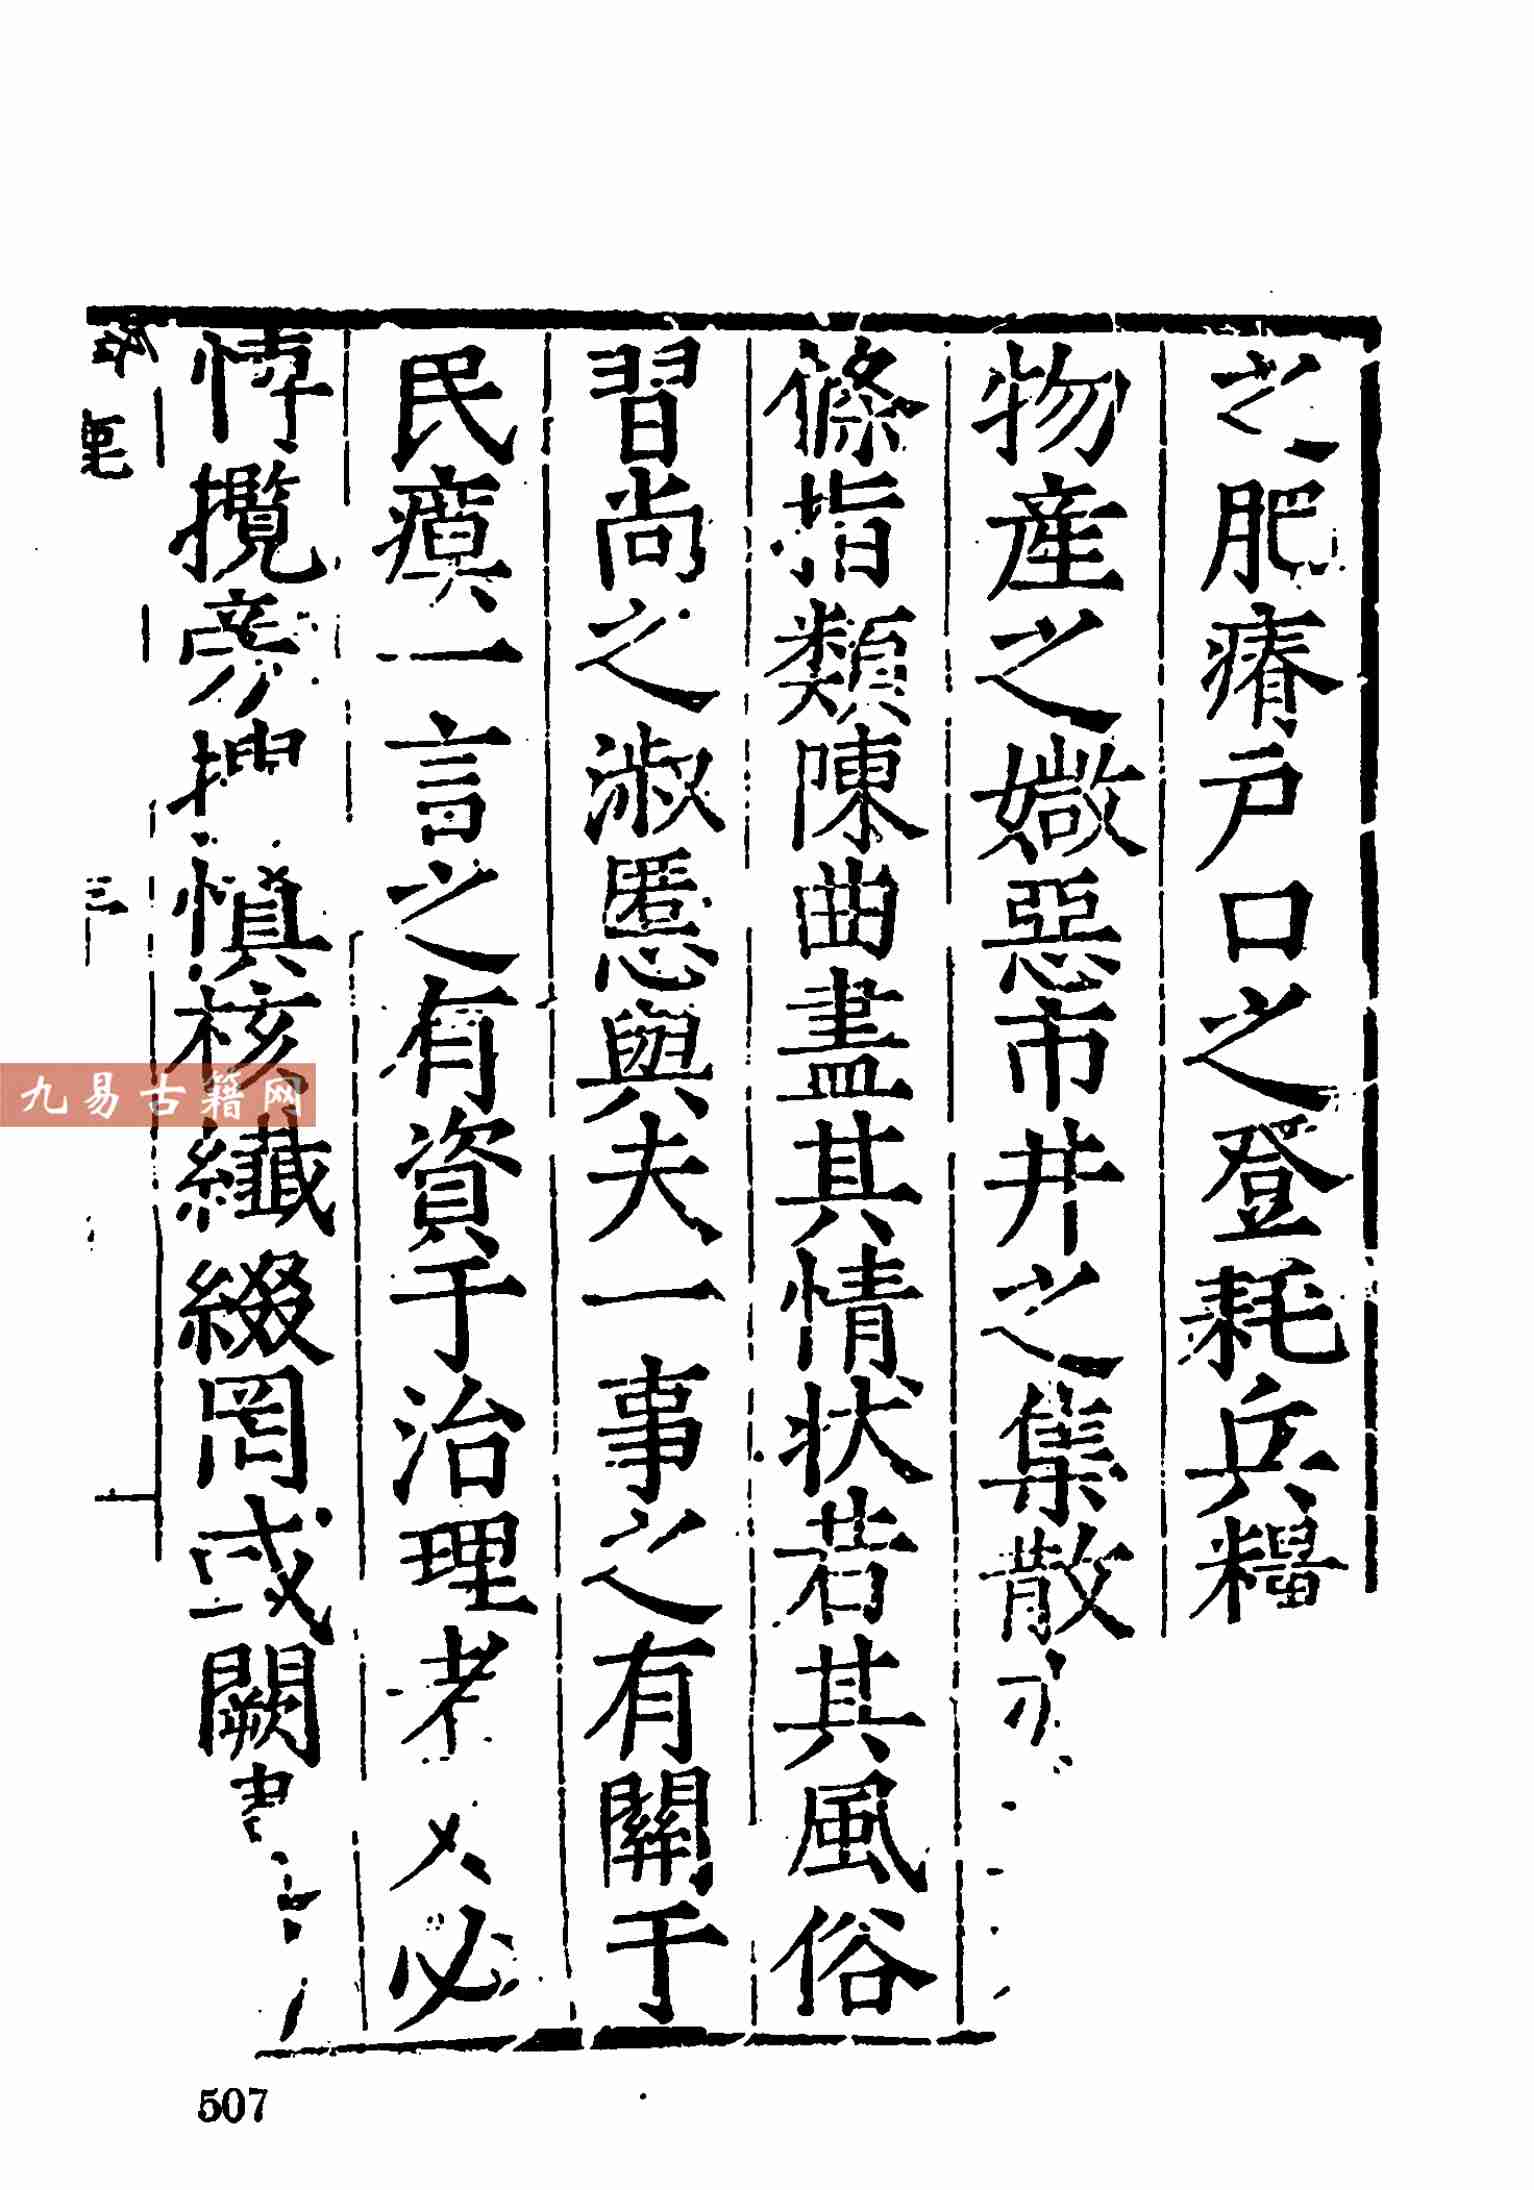 之肥瘠户口之登耗兵糧
物産之媺惡市井之集散
條指類陳曲盡其情狀若其風俗
習尚之淑慝與夫一事之有關于
民瘼一言之有資于治理者 必
博攬旁搜慎核纖綴罔或闕
三
九易古籍网
507